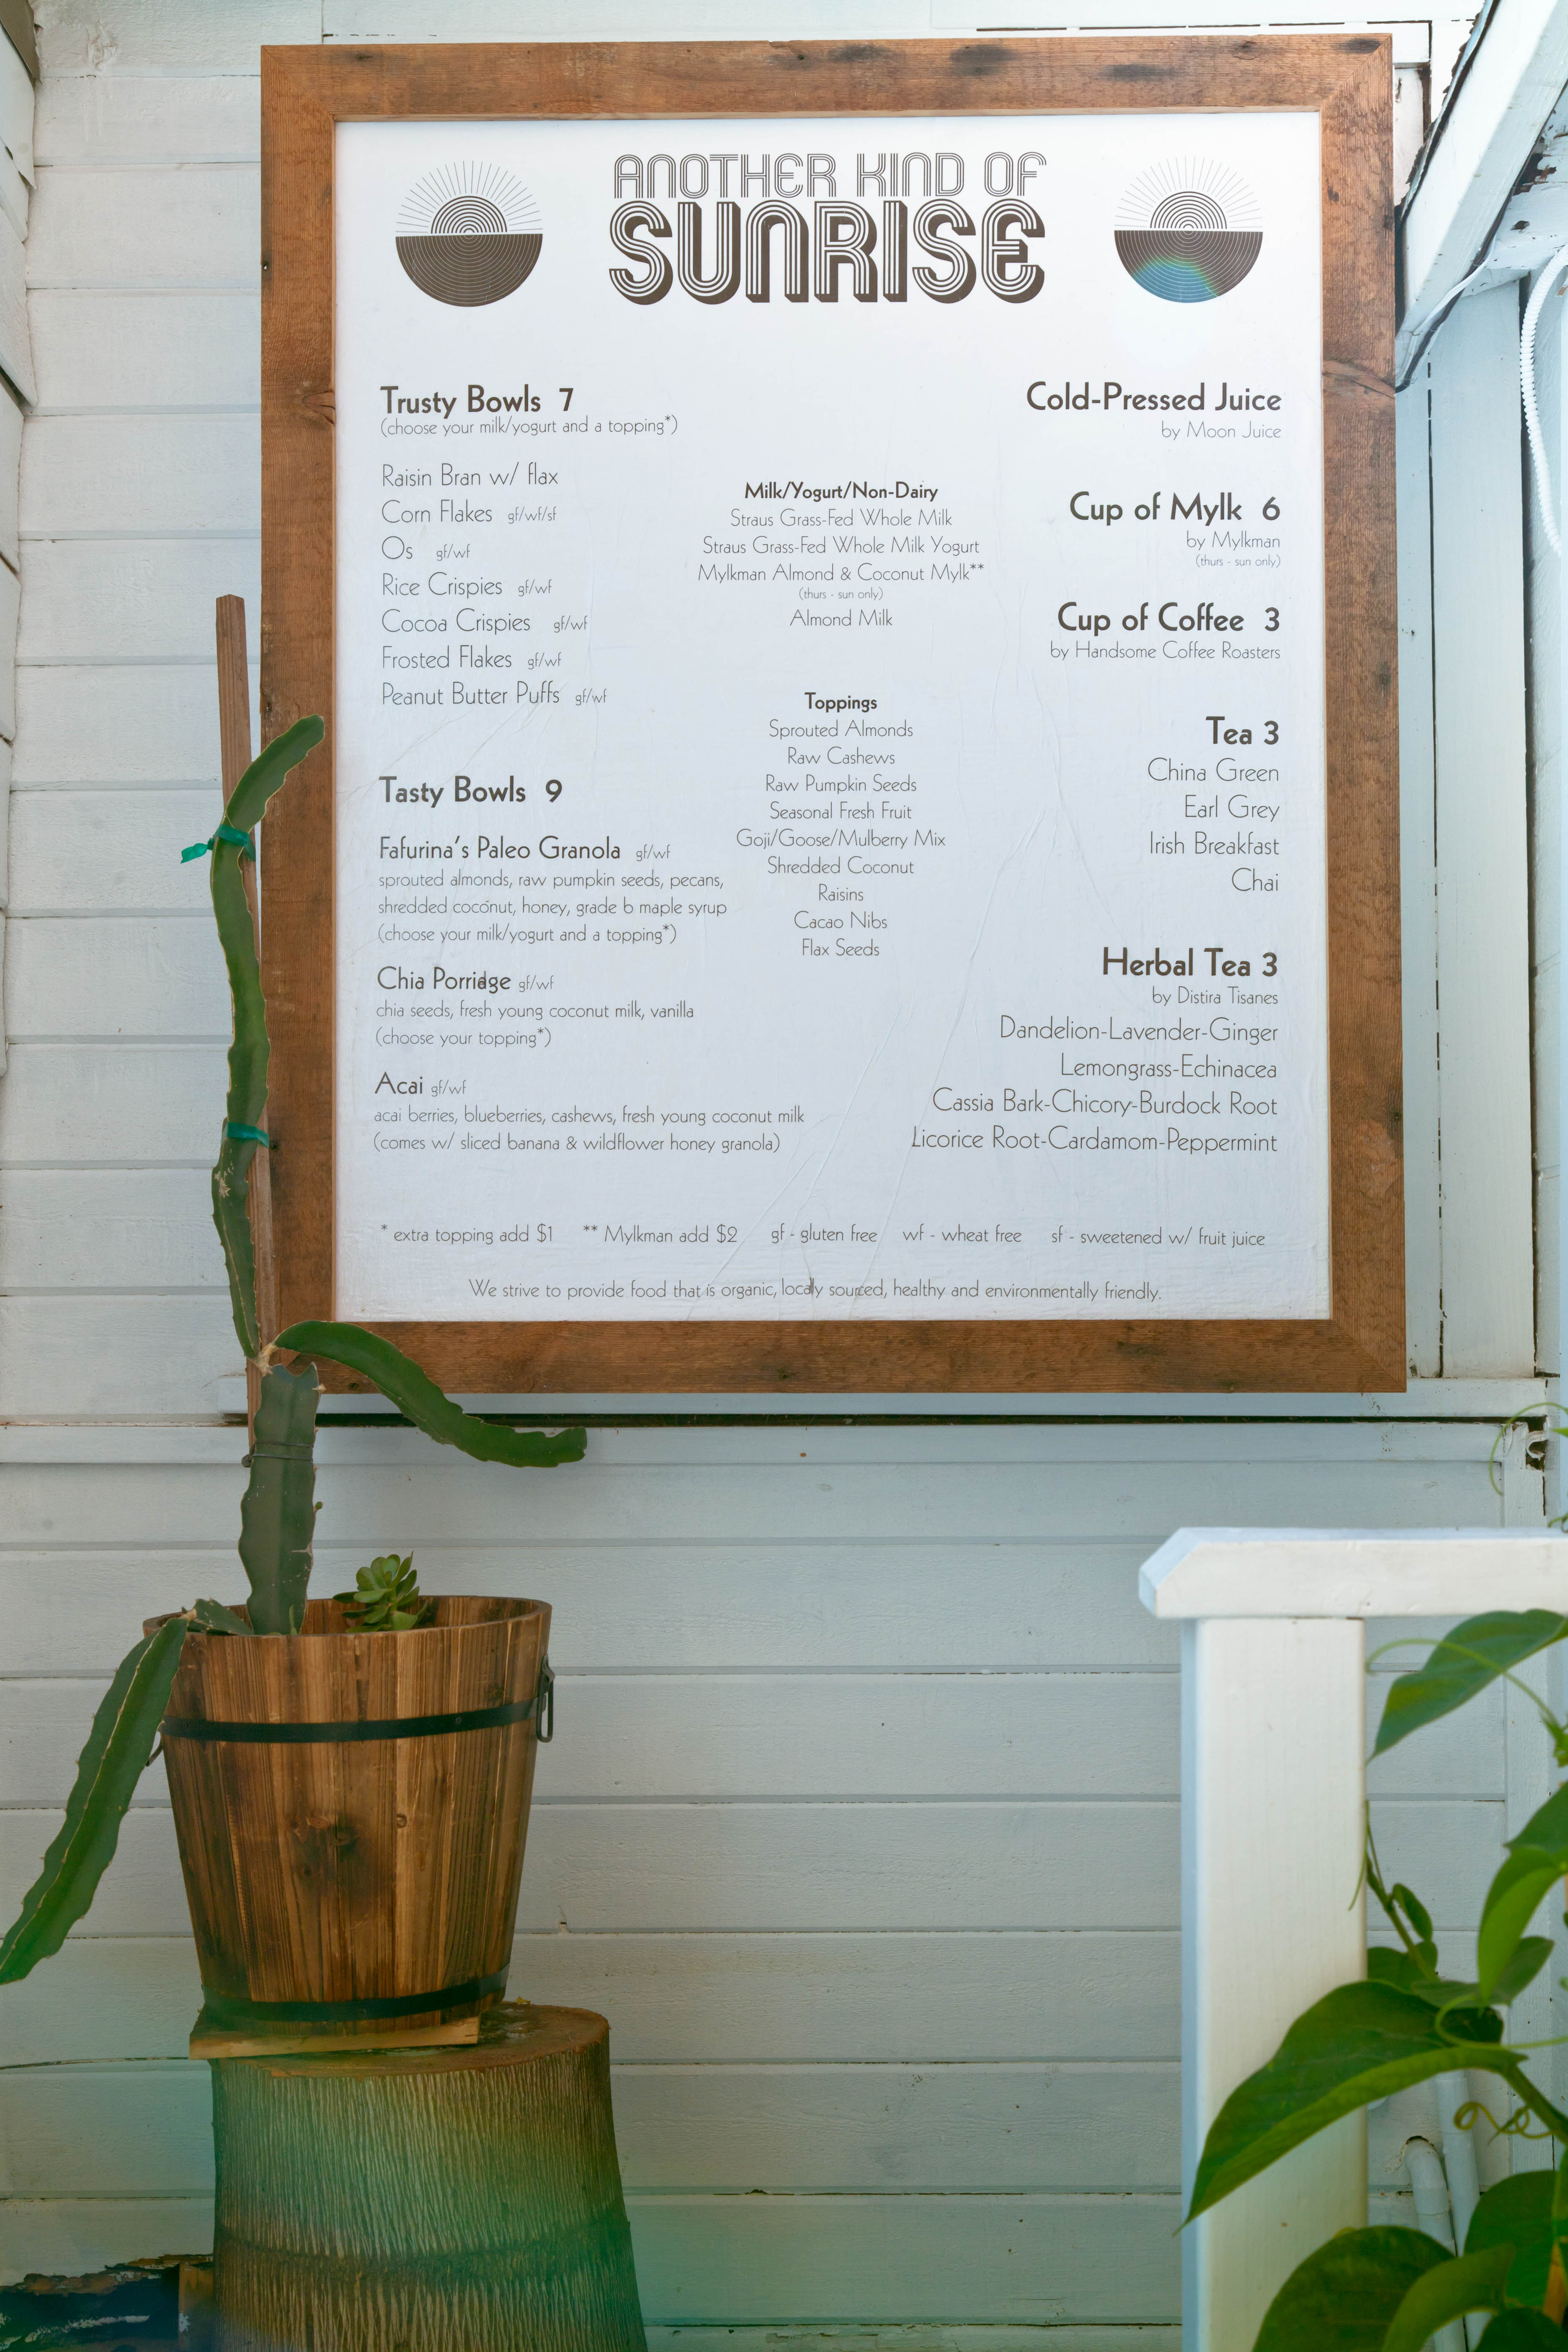 ANOTHER KIND OF
SUNRISE
Trusty Bowls 7
(choose your milk/yogurt and a topping*)
Raisin Bran w/ flax
Corn Flakes gf/wf/sf
Os gf/wf
Rice Crispies gf/wf
Cocoa Crispies gf/wf
Frosted Flakes gf/wf
Peanut Butter Puffs gf/wf
Tasty Bowls 9
Fafurina's Paleo Granola gf/wf
sprouted almonds, raw pumpkin seeds, pecans,
shredded coconut, honey, grade b maple syrup
(choose your milk/yogurt and a topping*)
Chia Porridge gf/wf
chia seeds, fresh young coconut milk, vanilla
(choose your topping*)
Acai gf/wf
acai berries, blueberries, cashews, fresh young coconut milk
(comes w/ sliced banana & wildflower honey granola)
Milk/Yogurt/Non-Dairy
Straus Grass-Fed Whole Milk
Straus Grass-Fed Whole Milk Yogurt
Mylkman Almond & Coconut Mylk**
(thurs - sun only)
Almond Milk
Toppings
Sprouted Almonds
Raw Cashews
Raw Pumpkin Seeds
Seasonal Fresh Fruit
Goji/Goose/Mulberry Mix
Shredded Coconut
Raisins
Cacao Nibs
Flax Seeds
Cold-Pressed Juice
by Moon Juice
Cup of Mylk 6
by Mylkman
(thurs - sun only)
Cup of Coffee 3
by Handsome Coffee Roasters
Tea 3
China Green
Earl Grey
Irish Breakfast
Chai
Herbal Tea 3
by Distira Tisanes
Dandelion-Lavender-Ginger
Lemongrass-Echinacea
Cassia Bark-Chicory-Burdock Root
Licorice Root-Cardamom-Peppermint
* extra topping add $1 ** Mylkman add $2 gf - gluten free wf - wheat free sf - sweetened w/ fruit juice
We strive to provide food that is organic, locally sourced, healthy and environmentally friendly.